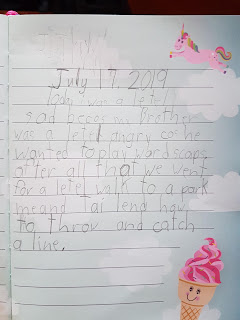 July 17, 2019
Today i was a letel
sad becos my Brother
was a letel angry cos he
wanted to play wordscaps
after all that we went
for a letel walk to a park
me and Tai lend how
to throw and catch
a line.